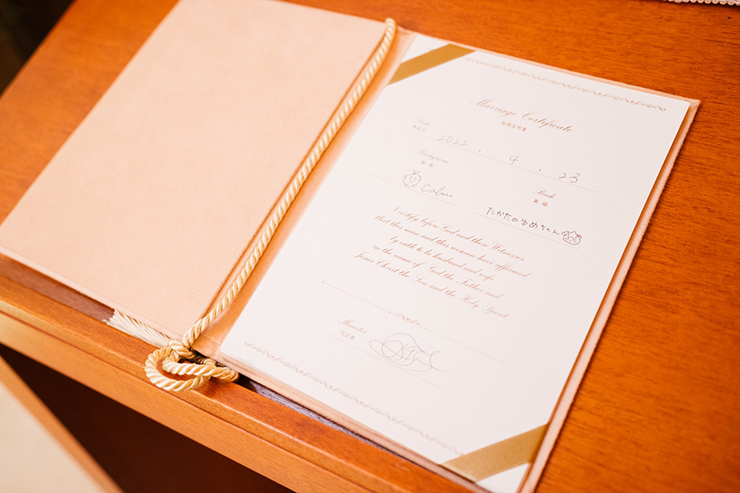 Marriage Certificate
結婚証明書
Date
2022 . 4 . 23
Bridegroom
新郎
Bride
新婦
たかたのゆめちゃん
I certify before God and these Witnesses
that this man and this woman have affirmed
by oath to be husband and wife
in the name of God the Father and
Jesus Christ the Son and the Holy Spirit
Minister
司式者